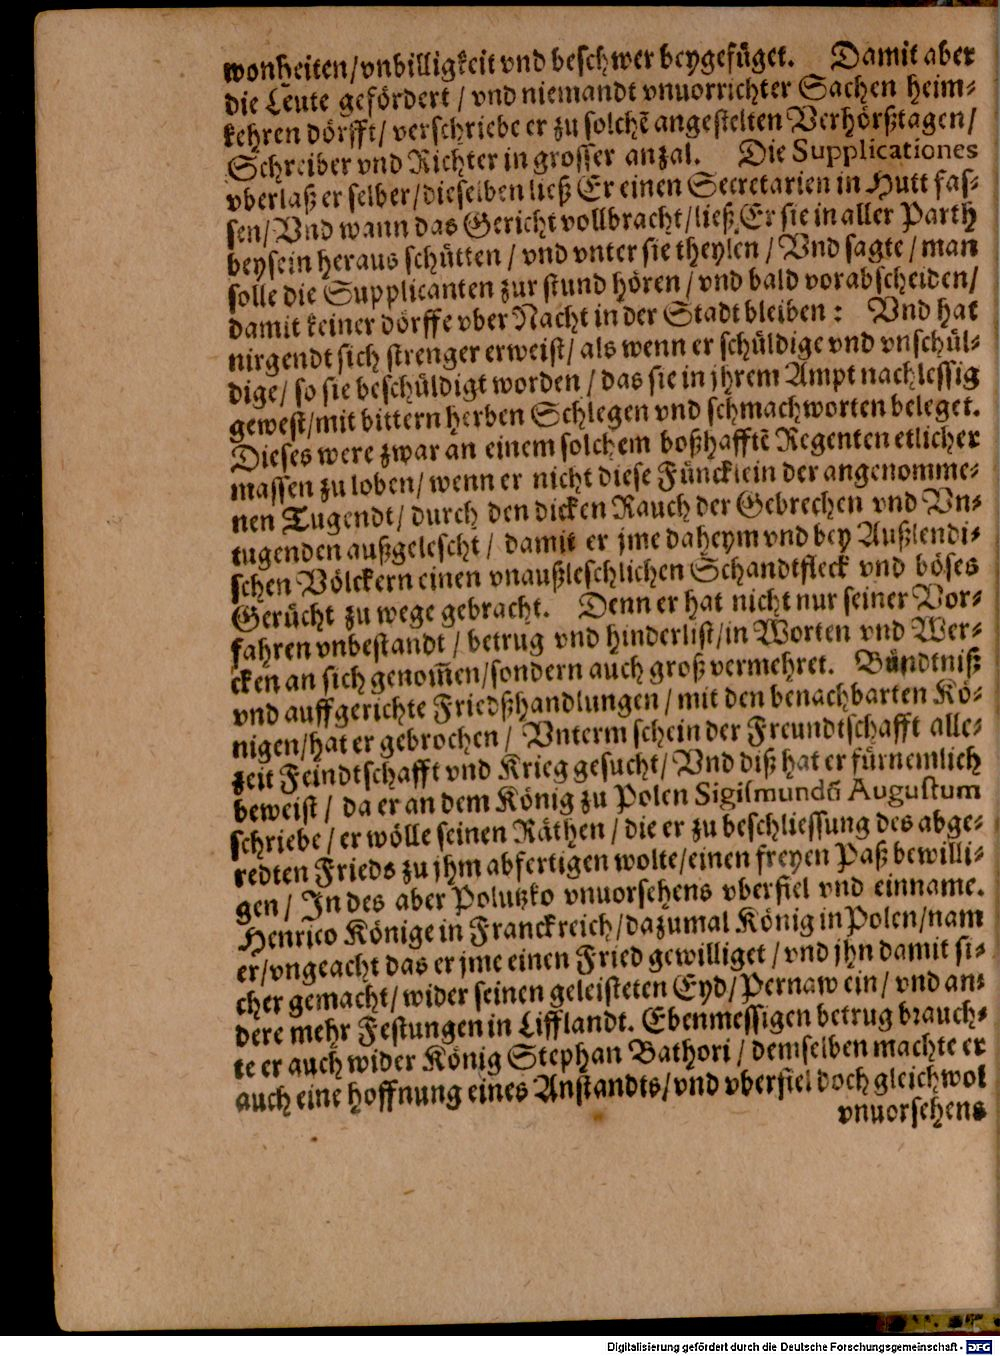 wonheiten/vnbilligkeit vnd beschwer beygefüget. Damit aber
die Leute gefördert / vnd niemandt vnuorrichter Sachen heim-
kehren dörfft/ verschriebe er zu solchē angestelten Verhörßtagen/
Schreiber vnd Richter in grosser anzal. Die Supplicationes
vberlaß er selber/dieselben ließ Er einen Secretarien in Hutt fas-
sen/ Vnd wann das Gericht vollbracht/ließ Er sie in aller Parth
beysein heraus schütten / vnd vnter sie theylen / Vnd sagte / man
solle die Supplicanten zur stund hören / vnd bald vorabscheiden/
damit keiner dörffe vber Nacht in der Stadt bleiben: Vnd hat
nirgendt sich strenger erweist/ als wenn er schüldige vnd vnschül-
dige/ so sie beschüldigt worden / das sie in jhrem Ampt nachlessig
gewest/mit bittern herben Schlegen vnd schmachworten beleget.
Dieses were zwar an einem solchem boßhafftē Regenten etlicher
massen zu loben/ wenn er nicht diese Füncklein der angenomme-
nen Tugendt/ durch den dicken Rauch der Gebrechen vnd Vn-
tugenden außgelescht / damit er jme daheym vnd bey Außlendi-
schen Völckern einen vnaußleschlichen Schandtfleck vnd böses
Gerücht zu wege gebracht. Denn er hat nicht nur seiner Vor-
fahren vnbestandt / betrug vnd hinderlist/in Worten vnd Wer-
cken an sich genom̄en/sondern auch groß vermehret. Bündtniß
vnd auffgerichte Friedßhandlungen / mit den benachbarten Kö-
nigen/hat er gebrochen / Vnterm schein der Freundtschafft alle-
zeit Feindtschafft vnd Krieg gesucht/ Vnd diß hat er fürnemlich
beweist / da er an dem König zu Polen Sigismundū Augustum
schriebe / er wölle seinen Räthen / die er zu beschliessung des abge-
redten Frieds zu jhm abfertigen wolte/einen freyen Paß bewilli-
gen / In des aber Polutzko vnuorsehens vberfiel vnd einname.
Henrico Könige in Franckreich/dazumal König in Polen/nam
er/vngeacht das er jme einen Fried gewilliget / vnd jhn damit si-
cher gemacht/ wider seinen geleisteten Eyd/ Pernaw ein/ vnd an-
dere mehr Festungen in Lifflandt. Ebenmessigen betrug brauch-
te er auch wider König Stephan Bathori / demselben machte er
auch eine hoffnung eines Anstandts/ vnd vberfiel doch gleichwol
vnuorsehens
Digitalisierung gefördert durch die Deutsche Forschungsgemeinschaft - DFG